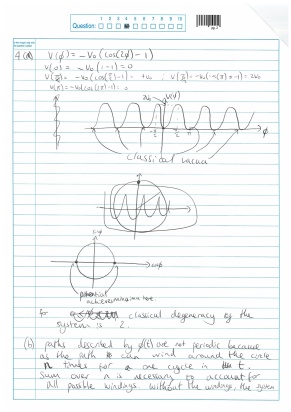 Question: 1 2 3 4 5 6 7 8 9 10
4 (a) V(φ) = -V₀ (cos(2φ) - 1)
V(0) = -V₀ (1-1) = 0
V(π) = -V₀(cos(2π)-1) = 0
2V₀
V(φ)
φ
classical vacua
sinφ
cosφ
potential
achieves minima here.
for classical degeneracy of the
system is 2.
(b) paths described by φ(t) are not periodic because
as the path can wind around the circle
n times for one cycle in t.
Sum over n is necessary to account for
all possible windings without the windings, the given